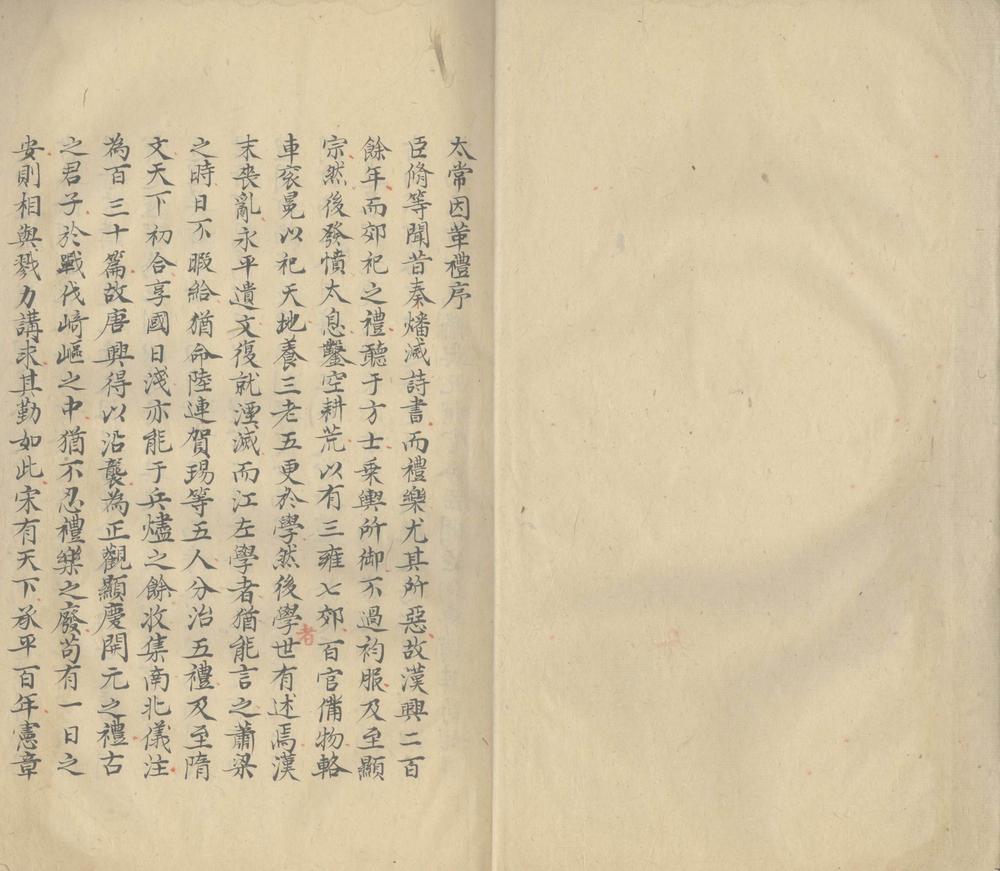 太常因革禮序
臣脩等聞昔秦燔滅詩書而禮樂尤其所惡故漢興二百
餘年而郊祀之禮聽于方士乗輿所御不過袀服及至顯
宗然後發憤太息鑿空耕荒以有三雍七郊百官備物輅
車衮冕以祀天地養三老五更於學然後學者世有述焉漢
末喪亂永平遺文復就湮滅而江左學者猶能言之蕭梁
之時日不暇給猶命陸連賀瑒等五人分治五禮及至隋
文天下初合享國日淺亦能于兵燼之餘收集南北儀注
為百三十篇故唐興得以沿襲為正觀顯慶開元之禮古
之君子於戰伐崎嶇之中猶不忍禮樂之廢苟有一日之
安則相與戮力講求其勤如此宋有天下承平百年憲章